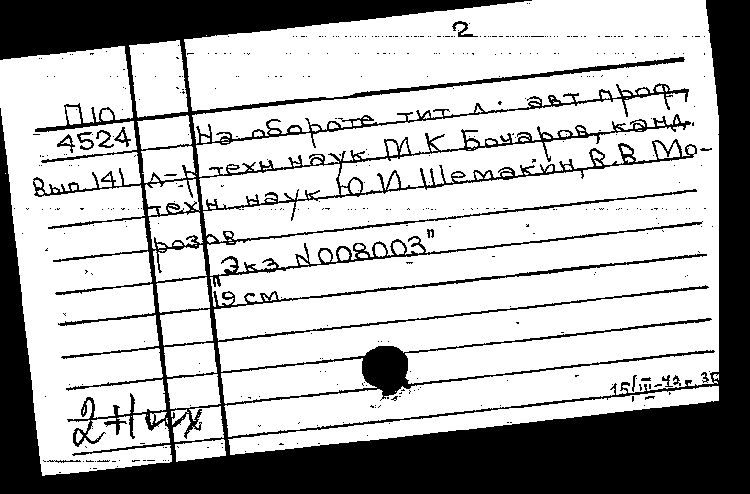 2
П10
4524 На обороте тит. л.: авт. проф.,
Вып. 141 д-р техн. наук М.К. Бочаров, канд.
техн. наук Ю.И. Шемакин, В.В. Мо-
розов.
"Экз. N008003"
19 см.
15/III-73г.